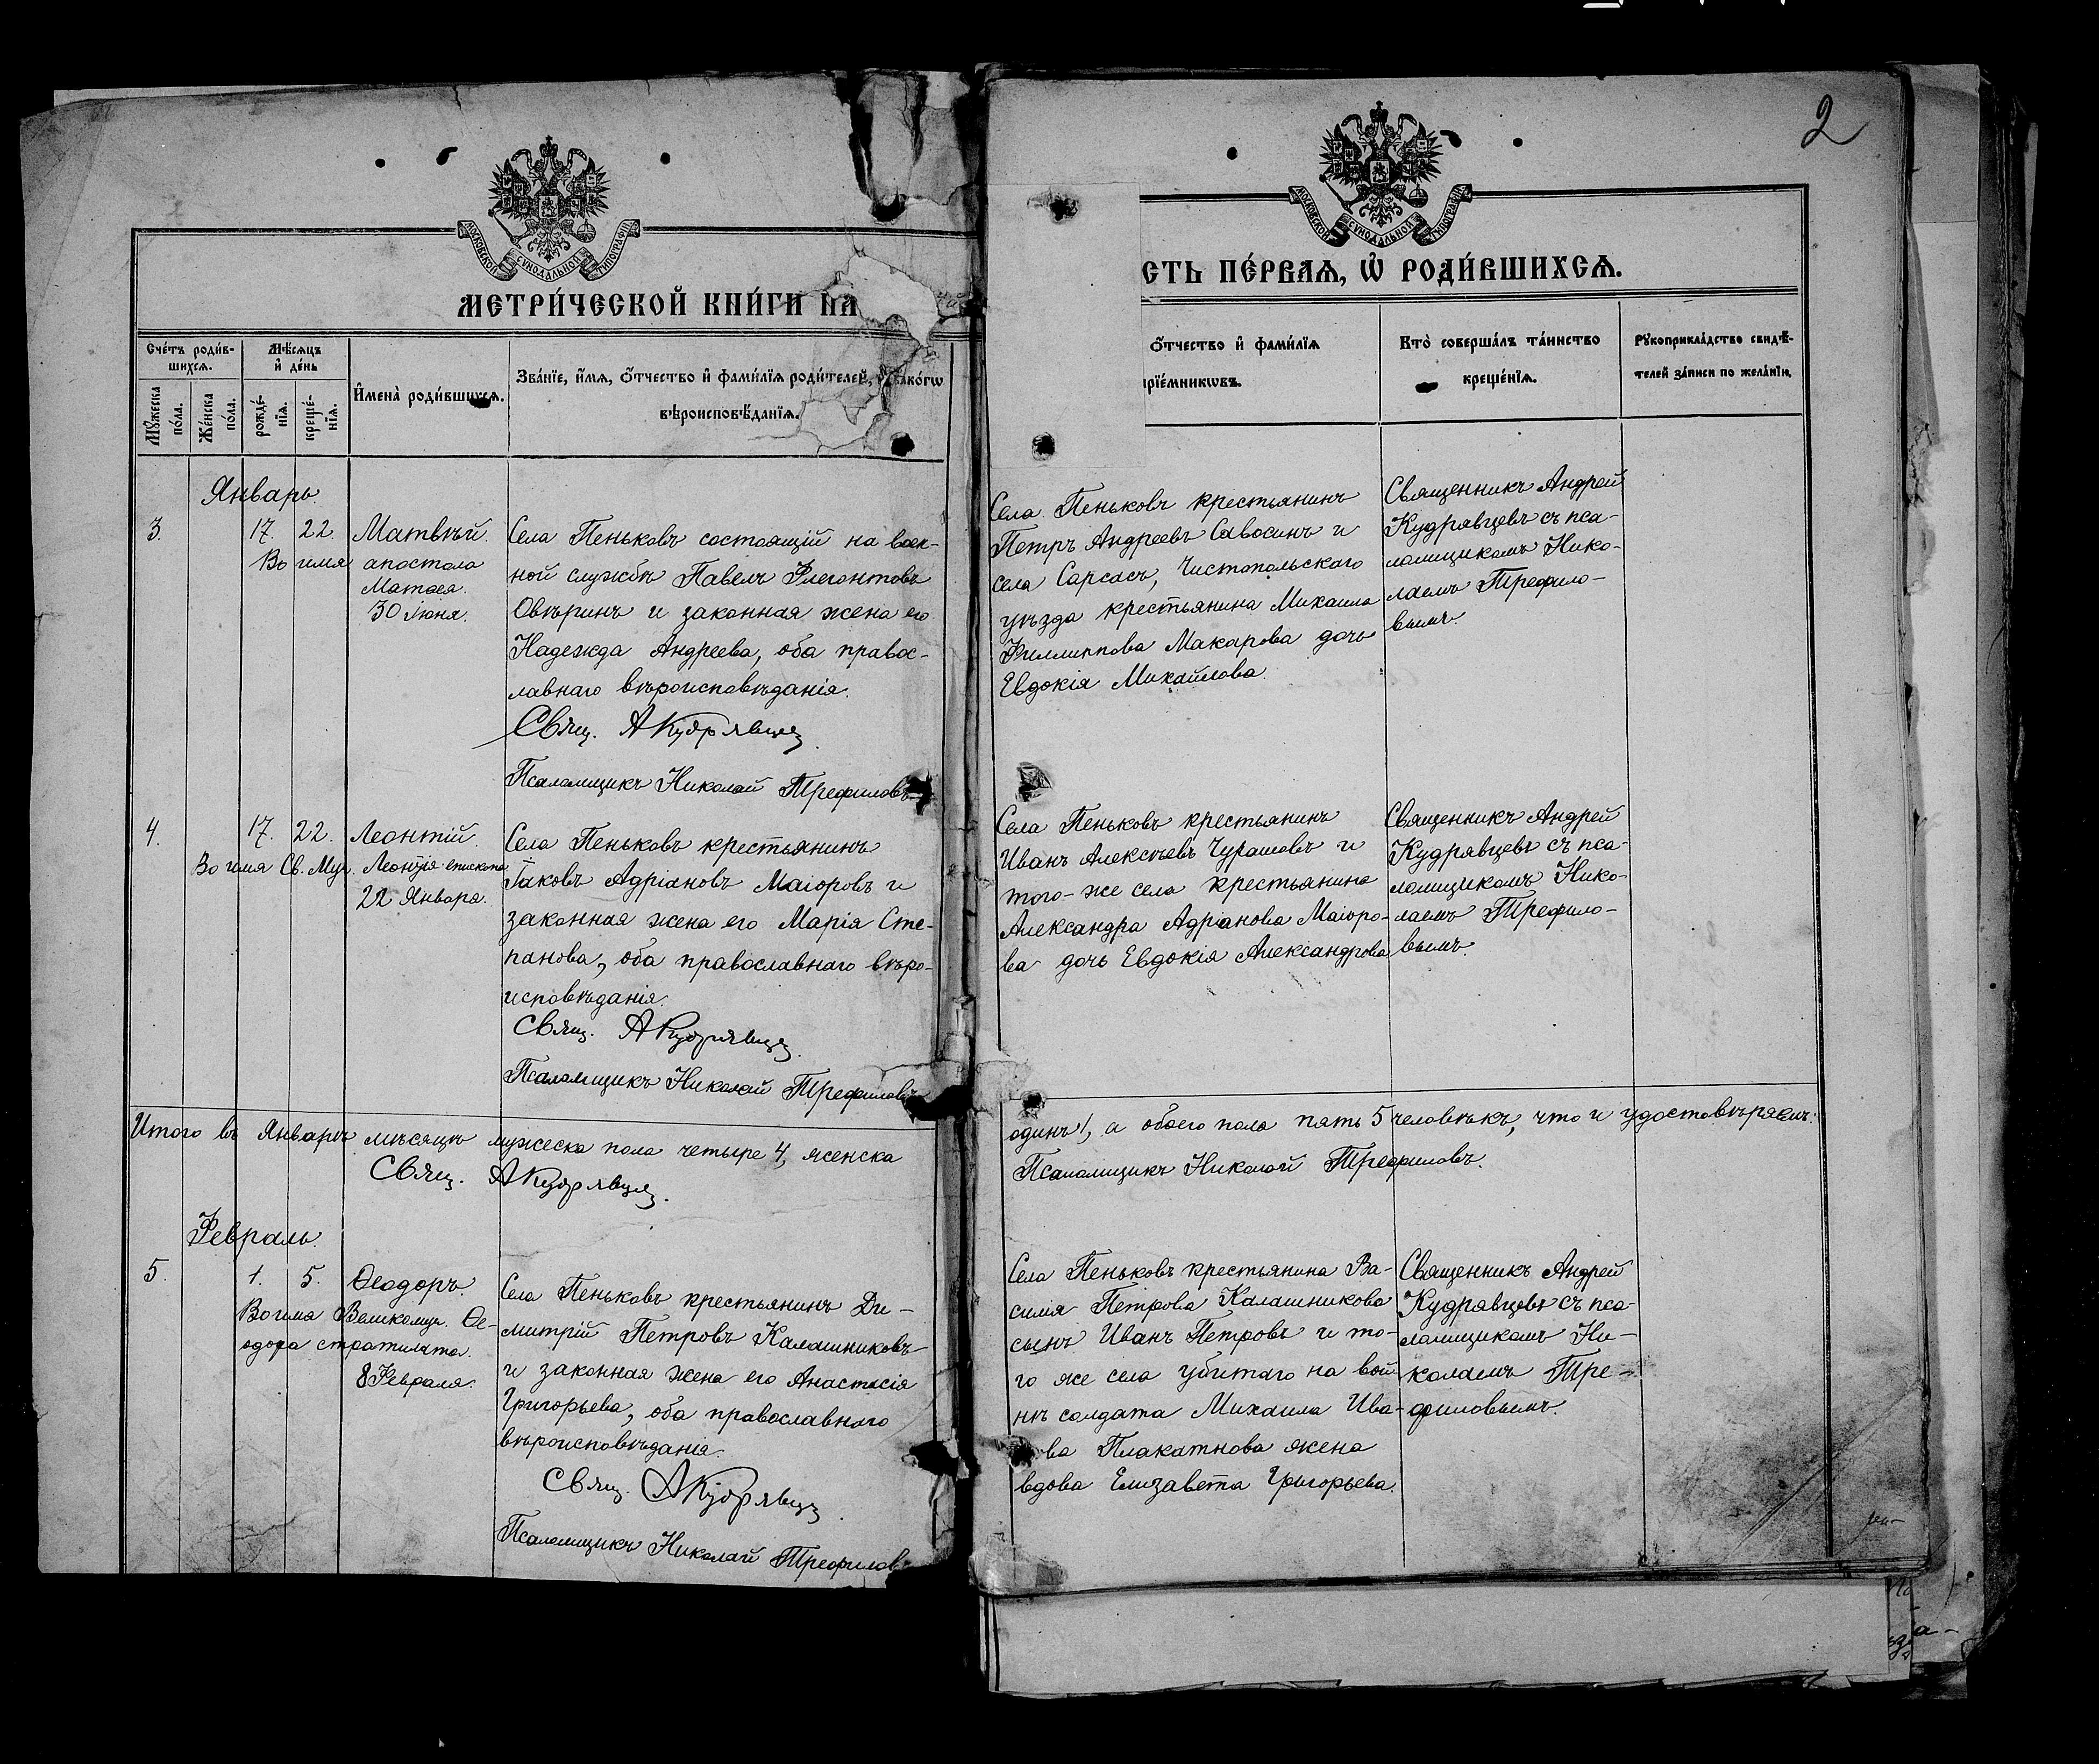 2
МОСКОВСКОЙ СѴНОДАЛЬНОЙ ТИПОГРАФІИ
МЕТРИ́ЧЕСКОЙ КНИ́ГИ НА
Сче́тъ роди́в-
шихсѧ.
Мѣ́сѧцъ
и҆ де́нь
Мꙋ́жеска
по́ла.
Же́нска
по́ла.
рожде́-
нїѧ.
креще́-
нїѧ.
И҆мена̀ роди́вшихсѧ.
Зва́нїе, и҆́мѧ, ѻ҆́тчество и҆ фами́лїѧ роди́телей, и҆ како́гѡ
вѣроисповѣ́данїѧ.
Январь.
3.
17.
22.
Матвѣй.
Во имя апостола
Матѳея.
30 Іюня.
Села Пеньковъ состоящій на воен-
ной службѣ Павелъ Флегонтовъ
Овѣринъ и законная жена его
Надежда Андреева, оба правос-
лавнаго вѣроисповѣданія.
Свящ. АКудрявцев
Псаломщикъ Николай Трефиловъ
4.
17.
22.
Леонтій.
Во имя Св. Муч. Леонтія епископа
22 Января.
Села Пеньковъ крестьянинъ
Іаковъ Адріановъ Маіоровъ и
законная жена его Марія Сте-
панова, оба православнаго вѣро-
исповѣданія.
Свящ. АКудрявцев
Псаломщикъ Николай Трефиловъ
Итого въ Январѣ мѣсяцѣ мужеска пола четыре 4, женска
Свящ. АКудрявцев.
Февраль.
5.
1.
5.
Ѳеодоръ.
Во имя Великомуч. Ѳе-
одора стратилата.
8 Февраля.
Села Пеньковъ крестьянинъ Ди-
митрій Петровъ Калашниковъ
и законная жена его Анастасія
Григорьева, оба православнаго
вѣроисповѣданія.
Свящ. АКудрявцев.
Псаломщикъ Николай Трефилов
МОСКОВСКОЙ СѴНОДАЛЬНОЙ ТИПОГРАФІИ
СТЬ ПЕ́РВАѦ, Ѡ҆ РОДИ́ВШИХСѦ.
ѻ҆́тчество и҆ фами́лїѧ
прїе́мникѡвъ.
Кто̀ соверша́лъ та́инство
креще́нїѧ.
Рꙋкоприкла́дство свидѣ́-
телей за́писи по жела́нїю.
Села Пеньковъ крестьянинъ
Петръ Андреевъ Савосинъ и
села Сарсасъ, Чистопольскаго
уѣзда крестьянина Михаила
Филлиппова Макарова дочь
Евдокія Михайлова.
Священникъ Андрей
Кудрявцевъ съ пса-
ломщикомъ Нико-
лаемъ Трефило-
вымъ.
Села Пеньковъ крестьянинъ
Иванъ Алексѣевъ Чурашовъ и
того-же села крестьянина
Александра Адріанова Маіоро-
ва дочь Евдокія Александрова
Священникъ Андрей
Кудрявцевъ съ пса-
ломщикомъ Нико-
лаемъ Трефило-
вымъ.
одинъ 1, а обоего пола пять 5 человѣкъ, что и удостовѣряемъ:
Псаломщикъ Николай Трефиловъ.
Села Пеньковъ крестьянина Ва-
силія Петрова Калашникова
сынъ Иванъ Петровъ и то-
го же села убитаго на вой-
нѣ солдата Михаила Ива-
нова Плакатнова жена
вдова Елизавета Григорьева.
Священникъ Андрей
Кудрявцевъ съ пса-
ломщикомъ Ни-
колаемъ Тре-
филовымъ.